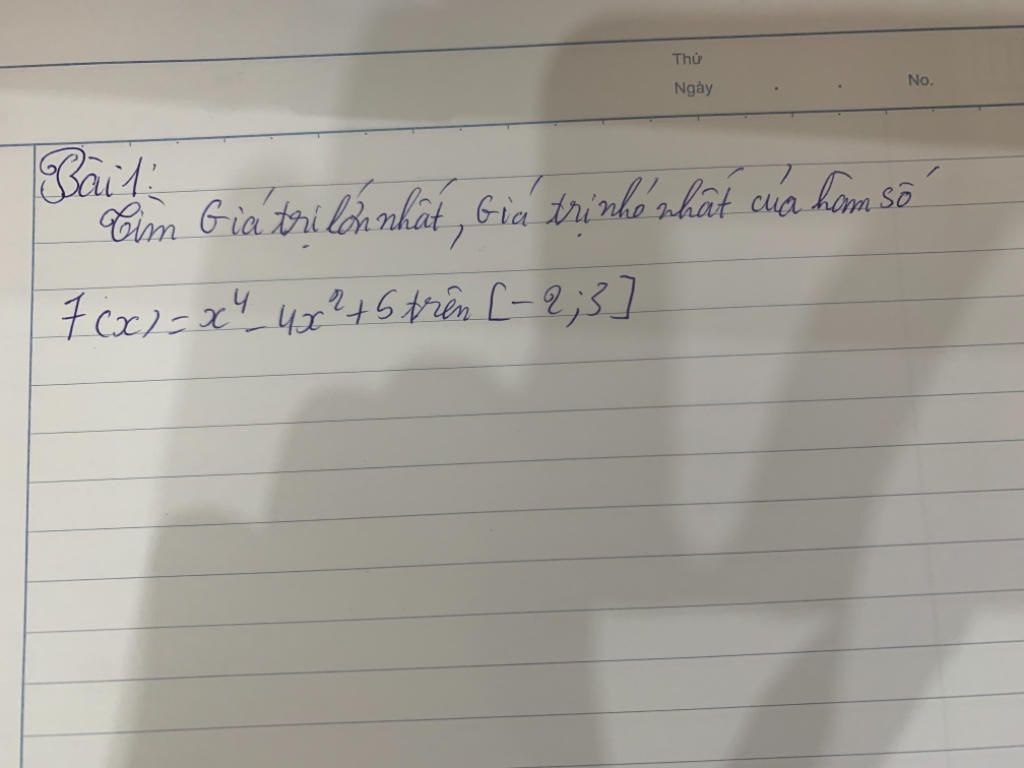 Thứ
Ngày . . No.
Bài 1:
Tìm Giá trị lớn nhất, Giá trị nhỏ nhất của hàm số
f(x) = x⁴ - 4x² + 5 trên [-2;3]